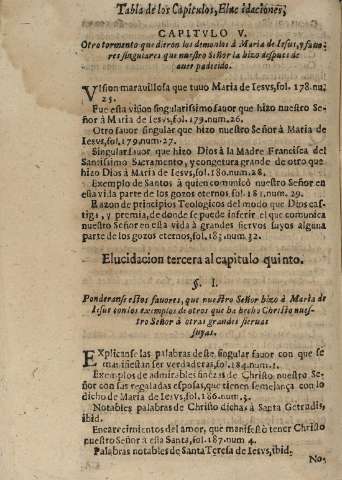 Tabla de los Capitulos, Elucidaciones,
CAPITVLO V.
Otro tormento que dieron los demonios à Maria de Iesus, y fauo-
res singulares que nuestro Señor la hizo despues de
auer padecido.
VIsion marauillosa que tuuo Maria de Iesvs, fol. 178. nu.
25.
Fue esta vision singularissimo fauor que hizo nuestro Se-
ñor à Maria de Iesvs, fol. 179. num. 26.
Otro fauor singular que hizo nuestro Señor à Maria de
Iesvs, fol. 179. num. 27.
Singular fauor que hizo Dios à la Madre Francisca del
Santissimo Sacramento, y congetura grande de otro que
hizo Dios à Maria de Iesvs, fol. 180. num. 28.
Exemplo de Santos à quien comunicò nuestro Señor en
esta vida parte de los gozos eternos, fol. 181. num. 29.
Razon de principios Teologicos del modo que Dios cas-
tiga, y premia, de donde se puede inferir el que comunica
nuestro Señor en esta vida à grandes siervos suyos alguna
parte de los gozos eternos, fol. 183. num. 32.
Elucidacion tercera al capitulo quinto.
§. I.
Ponderanse estos fauores, que nuestro Señor hizo à Maria de
Iesus con los exemplos de otros que ha hecho Christo nues-
tro Señor à otras grandes sieruas
suyas.
EXplicanse las palabras deste singular fauor con que se
manifiestan ser verdaderas, fol. 184. num. 1.
Exemplos de admirables finezas de Christo nuestro Se-
ñor con sus regaladas esposas, que tienen semejança con lo
dicho de Maria de Iesvs, fol. 186. num. 3.
Notables palabras de Christo dichas à Santa Getrudis,
ibid.
Encarecimientos del amor, que manifestò tener Christo
nuestro Señor à esta Santa, fol. 187. num 4.
Palabras notables de Santa Teresa de Iesvs, ibid.
No-